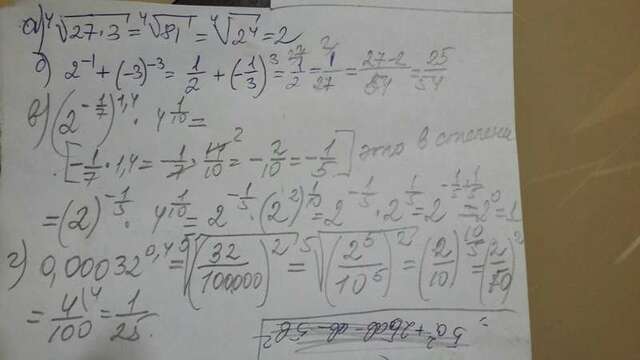 а) ⁴√(27·3) = ⁴√81 = ⁴√(2⁴) = 2
б) 2⁻¹ + (-3)⁻³ = 1/2 + (-1/3)³ = 1/2 - 1/27 = (27-2)/54 = 25/54
в) (2^(-1/7))^(1,4) · 4^(1/10) =
[-1/7 · 1,4 = -1/7 · 14/10 = -2/10 = -1/5] это в степени
= (2)^(-1/5) · 4^(1/10) = 2^(-1/5) · (2²)^(1/10) = 2^(-1/5) · 2^(1/5) = 2^(-1/5+1/5) = 2⁰ = 1
г) 0,00032^(0,4) = ⁵√((32/100000)²) = ⁵√((2⁵/10⁵)²) = (2/10)^(10/5) = (2/10)²
= 4/100 = 1/25.